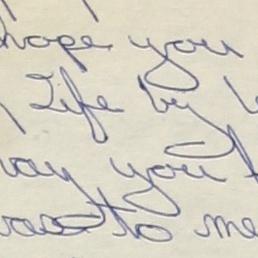 hope you
Life by
way you
to me